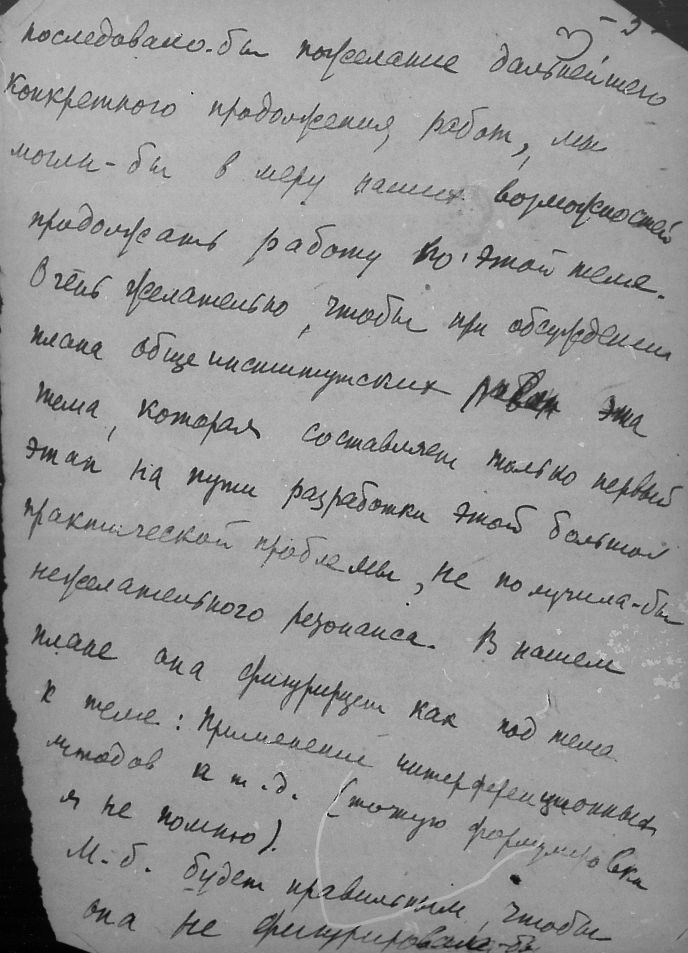 - 3 -
последовало-бы пожелание дальнейшего
конкретного продолжения работ, мы
могли-бы в меру наших возможностей
продолжать работу по этой теме.
Очень желательно, чтобы при обсуждении
плана общеинститутских работ эта
тема, которая составляет только первый
этап на пути разработки этой большой
практической проблемы, не получила-бы
нежелательного резонанса. В нашем
плане она фигурирует как под тема
к теме: Применение интерференционных
методов и т.д. (точную формулировку
я не помню).
М.б. будет правильным, чтобы
она не фигурировала-бы